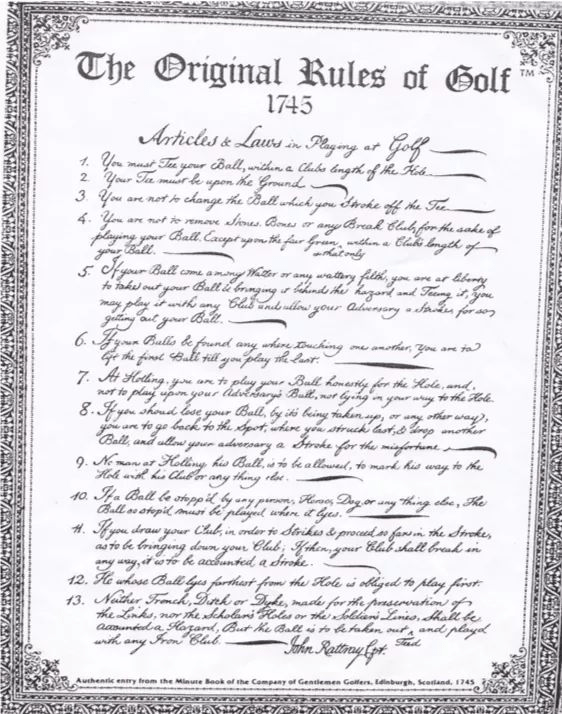 The Original Rules of Golf ™
1745
Articles & Laws in Playing at Golf
1. You must Tee your Ball, within a Clubs length of the Hole.
2. Your Tee must be upon the Ground.
3. You are not to change the Ball which you Stroke off the Tee
4. You are not to remove Stones. Bones or any Break Club, for the sake of
playing your Ball, Except upon the fair Green, within a Clubs length of
your Ball. & that only
5. If your Ball come among Watter or any wattery filth, you are at liberty
to take out your Ball & bringing it behind the hazard and Teeing it, You
may play it with any Club and allow your Adversary a Stroke, for so
getting out your Ball.
6. If your Balls be found any where touching one another, You are to
lift the first Ball till you play the last.
7. At Holling, you are to play your Ball honestly for the Hole, and,
not to play upon your Adversary's Ball, not lying in your way to the Hole.
8. If you should lose your Ball, by its being taken up, or any other way,
you are to go back to the Spot, where you struck last, & drop another
Ball, and allow your adversary a Stroke for the misfortune.
9. No man at Holling his Ball, is to be allowed, to mark his way to the
Hole with his Club or any thing else.
10. If a Ball be stopp'd by any person, Horse, Dog or any thing else, The
Ball so stop'd must be played where it lyes.
11. If you draw your Club, in order to Strike & proceed so far in the Stroke,
as to be bringing down your Club; If then, your Club shall break in
any way, it is to be accounted a Stroke.
12. He whose Ball lyes farthest from the Hole is obliged to play first.
13. Neither Trench, Ditch or Dyke, made for the preservation of
the Links, nor the Scholar's Holes or the Soldier's Lines, Shall be
accounted a Hazard, But the Ball is to be taken out ‸ and play'd
with any Iron Club. Teed
John Rattray Cpt.
Authentic entry from the Minute Book of the Company of Gentlemen Golfers, Edinburgh, Scotland, 1745